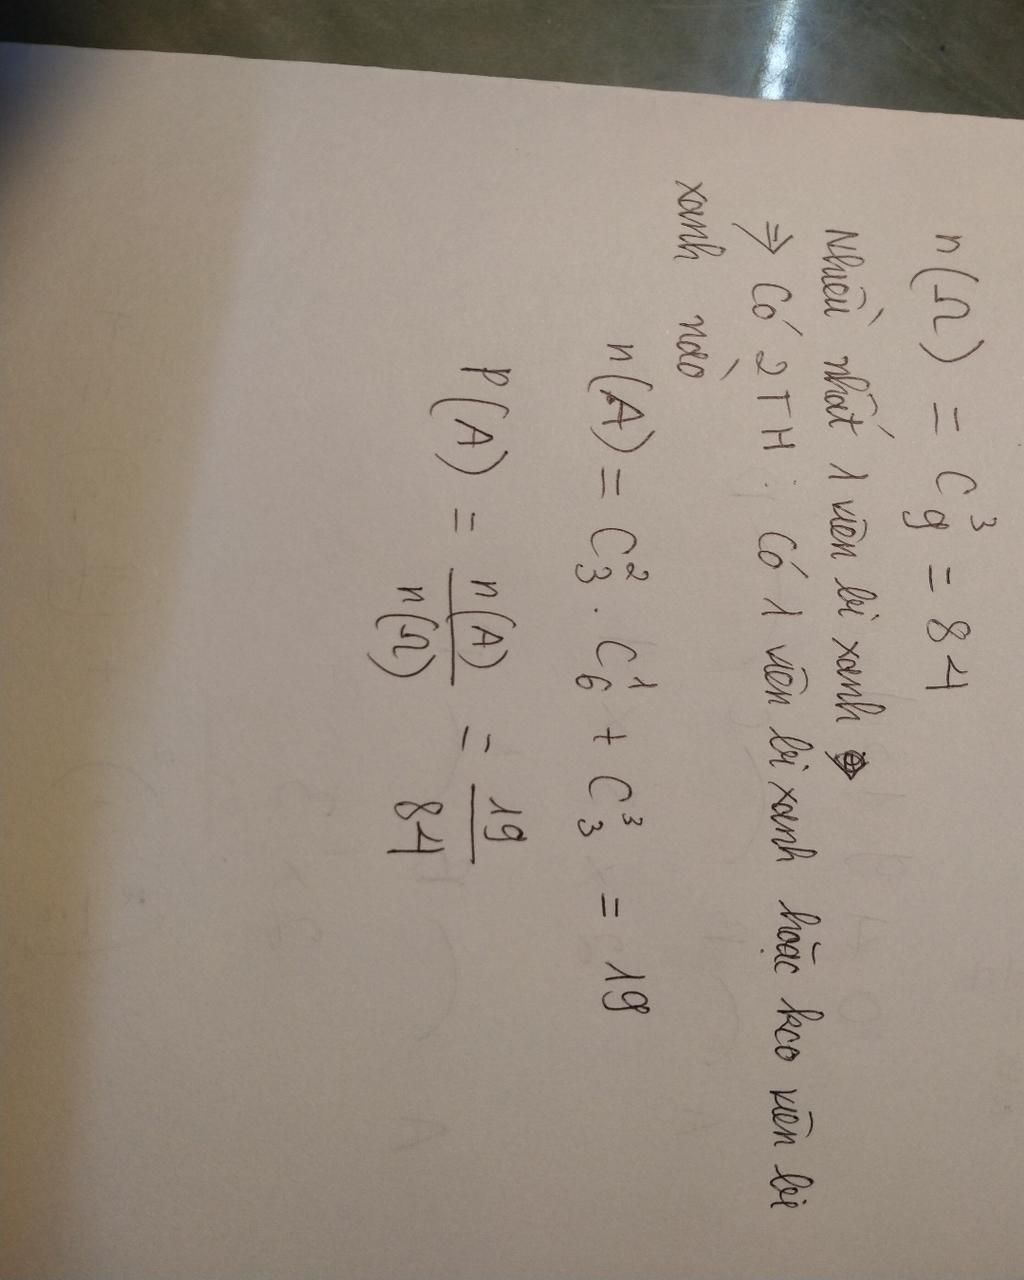 n(Ω) = C³₉ = 84
Nhiều nhất 1 viên bi xanh
⇒ Có 2TH: Có 1 viên bi xanh hoặc kco viên bi
xanh nào
n(A) = C²₃ . C¹₆ + C³₃ = 19
P(A) = n(A)/n(Ω) = 19/84